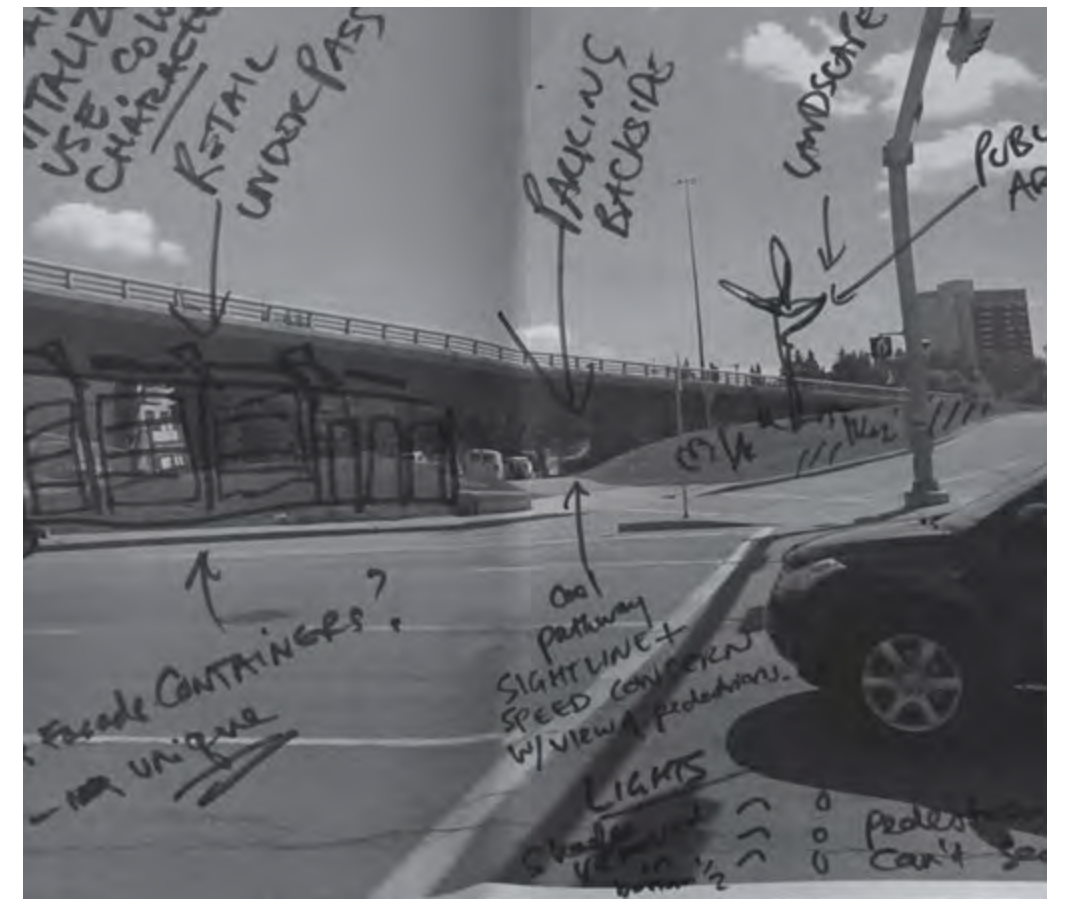 VITALIZ
USE COLO
CHARACTE
RETAIL
UNDERPASS
PARKING
BACKSIDE
LANDSCAPE
PUBL
AR
Facade CONTAINERS?
unique
pathway
SIGHTLINE +
SPEED CONCERN
W/ VIEW of pedestrians.
LIGHTS
Shade
bottom 1/2
pedestrian
Can't See